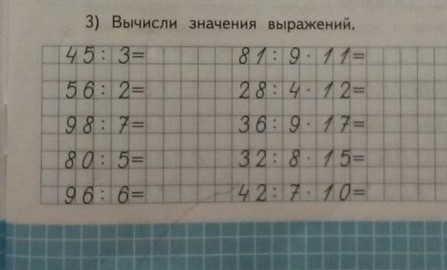 3) Вычисли значения выражений.
45 : 3= 81 : 9 · 11=
56 : 2= 28 : 4 · 12=
98 : 7= 36 : 9 · 17=
80 : 5= 32 : 8 · 15=
96 : 6= 42 : 7 · 10=